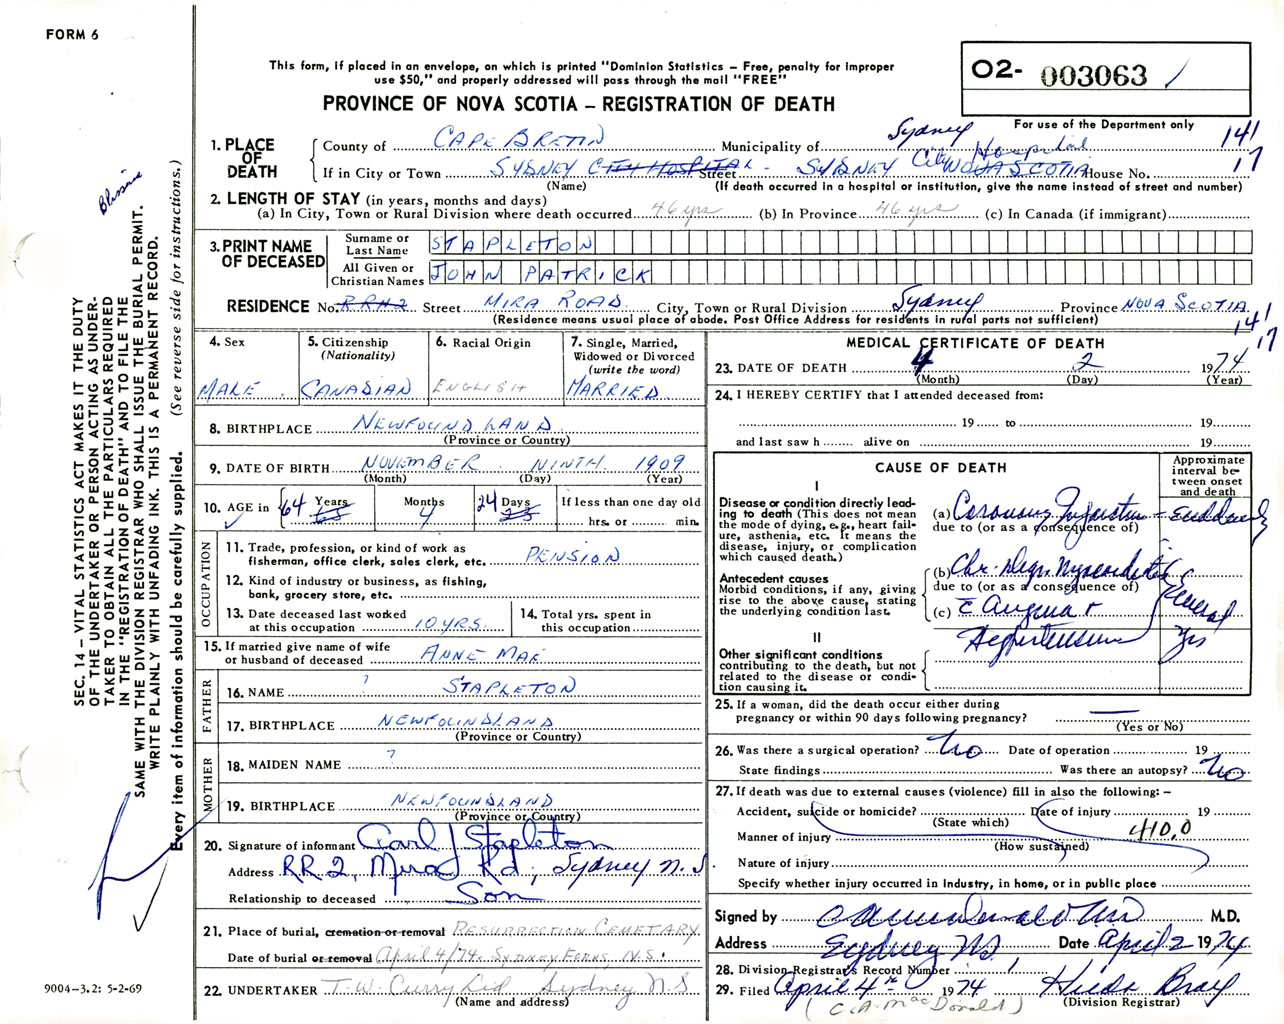 FORM 6
This form, if placed in an envelope, on which is printed "Dominion Statistics – Free, penalty for improper
use $50," and properly addressed will pass through the mail "FREE"
PROVINCE OF NOVA SCOTIA – REGISTRATION OF DEATH
02- 003063 /
For use of the Department only
141
17
1. PLACE OF DEATH
County of CAPE BRETIN Municipality of Sydney
If in City or Town SYDNEY CITY HOSPITAL - Street SYDNEY City Hospital NOVA SCOTIA House No.
(Name) (If death occurred in a hospital or institution, give the name instead of street and number)
2. LENGTH OF STAY (in years, months and days)
(a) In City, Town or Rural Division where death occurred 46 yrs (b) In Province 46 yrs (c) In Canada (if immigrant)
3. PRINT NAME OF DECEASED
Surname or Last Name STAPLETON
All Given or Christian Names JOHN PATRICK
RESIDENCE No. RR#2 Street MIRA ROAD City, Town or Rural Division Sydney Province NOVA SCOTIA
(Residence means usual place of abode. Post Office Address for residents in rural parts not sufficient)
141
17
4. Sex MALE
5. Citizenship (Nationality) CANADIAN
6. Racial Origin ENGLISH
7. Single, Married, Widowed or Divorced (write the word) MARRIED
8. BIRTHPLACE NEWFOUNDLAND
(Province or Country)
9. DATE OF BIRTH NOVEMBER NINTH 1909
(Month) (Day) (Year)
10. AGE in 64 Years 65 Months 4 24 Days 23 If less than one day old
hrs. or min.
OCCUPATION
11. Trade, profession, or kind of work as
fisherman, office clerk, sales clerk, etc. PENSION
12. Kind of industry or business, as fishing,
bank, grocery store, etc.
13. Date deceased last worked
at this occupation 10 YRS.
14. Total yrs. spent in
this occupation
15. If married give name of wife
or husband of deceased ANNE MAE
FATHER
16. NAME ? STAPLETON
17. BIRTHPLACE NEWFOUNDLAND
(Province or Country)
MOTHER
18. MAIDEN NAME ?
19. BIRTHPLACE NEWFOUNDLAND
(Province or Country)
20. Signature of informant Carl J Stapleton
Address RR2, Mira Rd, Sydney N.S.
Relationship to deceased Son
21. Place of burial, cremation or removal RESURRECTION CEMETARY
Date of burial or removal April 4/74. SYDNEY FORKS, N.S.
22. UNDERTAKER T.W. Curry Ltd Sydney N.S
(Name and address)
MEDICAL CERTIFICATE OF DEATH
23. DATE OF DEATH 4 2 1974
(Month) (Day) (Year)
24. I HEREBY CERTIFY that I attended deceased from:
19 to 19
and last saw h alive on 19
CAUSE OF DEATH
Approximate interval between onset and death
I
Disease or condition directly leading
to death (This does not mean
the mode of dying, e.g., heart failure,
asthenia, etc. It means the
disease, injury, or complication
which caused death.)
(a) Coronary Infarction - Suddenly
due to (or as a consequence of)
Antecedent causes
Morbid conditions, if any, giving
rise to the above cause, stating
the underlying condition last.
(b) Chr. Degn. Myocarditis
due to (or as a consequence of)
(c) c̄ Angina +
Hypertension
Several
Yrs
II
Other significant conditions
contributing to the death, but not
related to the disease or condition
causing it.
25. If a woman, did the death occur either during
pregnancy or within 90 days following pregnancy? —
(Yes or No)
26. Was there a surgical operation? No Date of operation 19
State findings Was there an autopsy? No
27. If death was due to external causes (violence) fill in also the following: –
Accident, suicide or homicide? Date of injury 19
(State which)
Manner of injury 410.0
(How sustained)
Nature of injury
Specify whether injury occurred in industry, in home, or in public place
Signed by C A MacDonald MD M.D.
Address Sydney NS Date April 2 1974
28. Division Registrar's Record Number
29. Filed April 4th 1974 Hilda Bray
(Division Registrar)
(C.A. MacDonald)
SEC. 14 – VITAL STATISTICS ACT MAKES IT THE DUTY
OF THE UNDERTAKER OR PERSON ACTING AS UNDER-
TAKER TO OBTAIN ALL THE PARTICULARS REQUIRED
IN THE "REGISTRATION OF DEATH" AND TO FILE THE
SAME WITH THE DIVISION REGISTRAR WHO SHALL ISSUE THE BURIAL PERMIT.
WRITE PLAINLY WITH UNFADING INK. THIS IS A PERMANENT RECORD.
Every item of information should be carefully supplied. (See reverse side for instructions.)
9004–3.2: 5-2-69